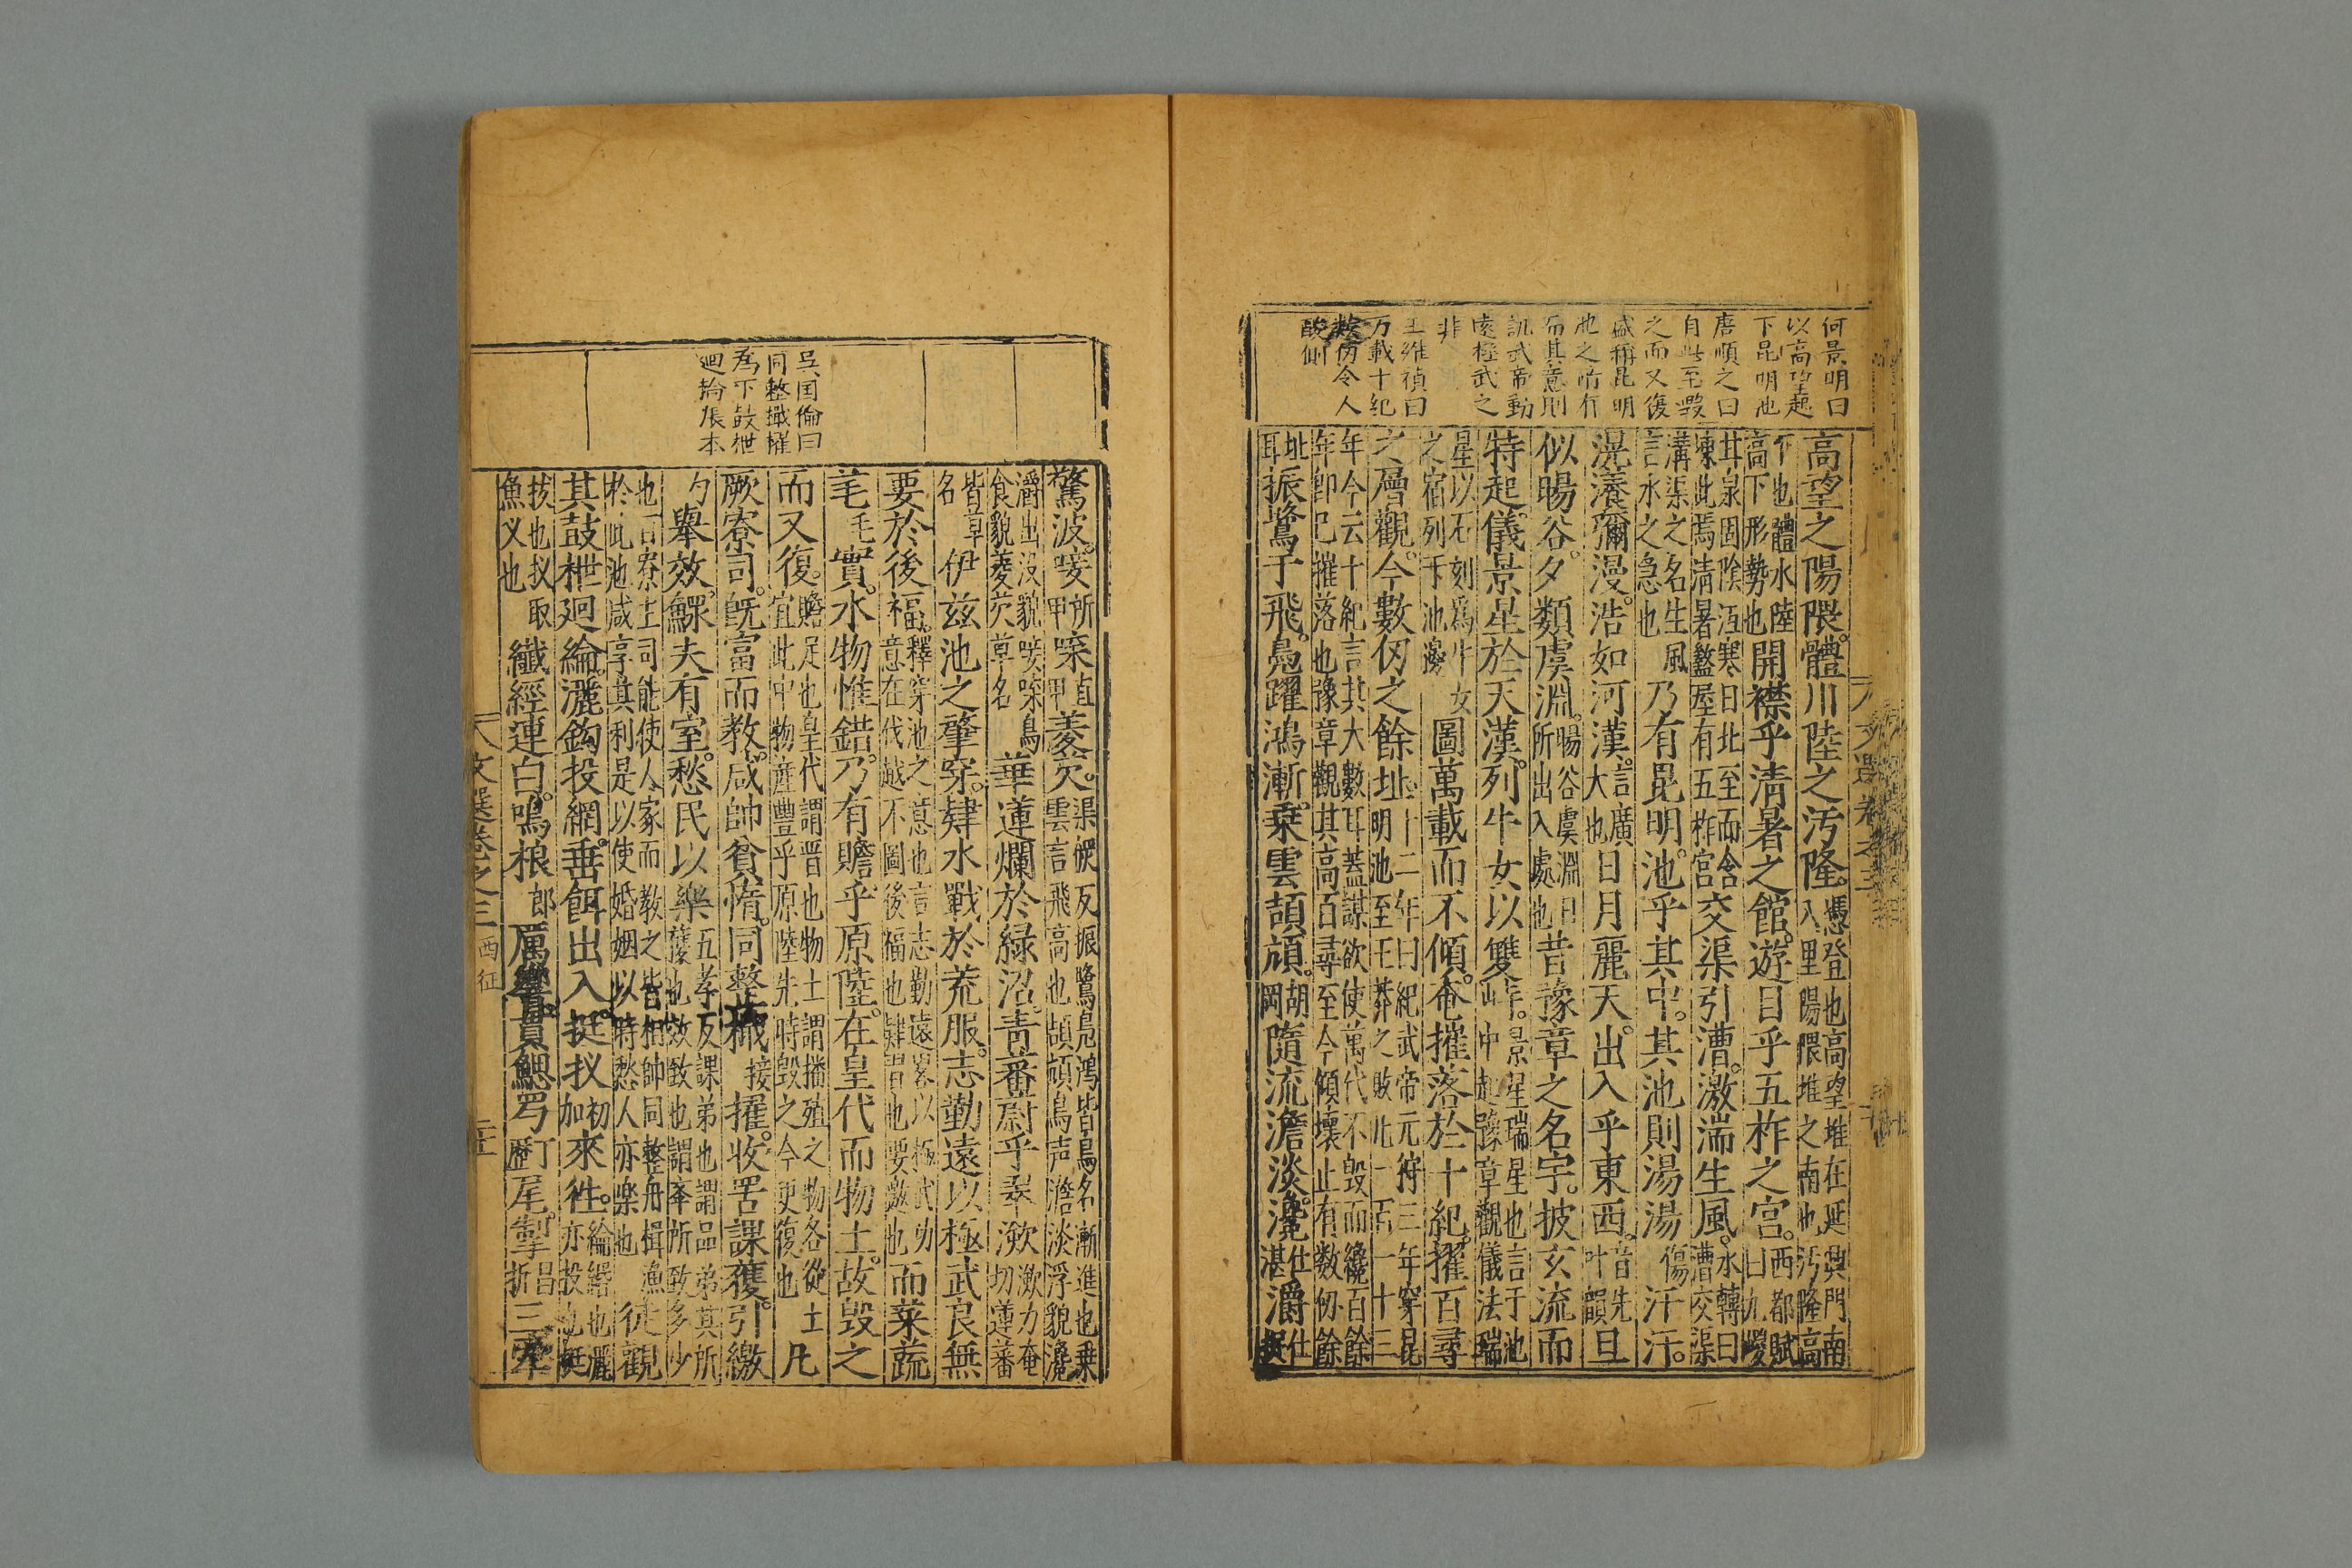 何景明曰
以高望起
下昆明池
唐順之曰
自此至毀
之而又復
盛稱昆明
池之所有
而其意則
訊武帝動
遠極武之
非
王維禎曰
万載十紀
數仞令人
酸惻
高望之陽隈體川陸之汚隆。憑登也高望堆在延興門南入里陽隈堆之南也汚隆高
下也體水陸高下形勢也開襟乎清暑之館。遊目乎五柞之宮。西都賦曰九嵕
甘泉固陰沍寒日北至而含凍此焉清暑盩屋有五柞宮交渠引漕。激湍生風。水轉曰漕交渠
溝渠之名生風言水之急也乃有昆明池乎其中。其池則湯湯傷汗汗。
滉瀁彌漫。浩如河漢。言廣大也日月麗天。出入乎東西。音先叶韻旦
似暘谷。夕類虞淵。暘谷虞淵日所出入處也昔豫章之名宇。披玄流而
特起。儀景星於天漢。列牛女以雙峙。景星瑞星也言于池中起豫章觀儀法瑞
星以石刻爲牛女之宿列于池邊圖萬載而不傾。奄摧落於十紀。擢百尋
之層觀。今數仞之餘址。十二年曰紀武帝元狩三年穿昆明池至王莽之敗此一百一十三
年今云十紀言其大數耳蓋謀欲使萬代不毀而纔百餘年卽已摧落也豫章觀其高百尋至今傾壞止有数仞餘
址耳振鷺于飛。鳧躍鴻漸。乗雲頡頏。胡岡隨流澹淡。瀺仕湛灂仕捉
文選卷之三
吳国倫曰
同整檝櫂
為下鼓枻
廻輪張本
驚波。唼所甲喋直甲菱芡。渠儉反振鷺鳧鴻皆鳥名漸進也乗雲言飛高也頡頏鳥声澹淡浮貌瀺
灂出没貌唼喋鳥食貌菱芡草名華蓮爛於緑沼。青蕃蔚乎翠瀲。瀲力奄切蓮蕃
皆草名伊兹池之肇穿。肄水戰於荒服。志勤遠以極武良無
要於後福。釋穿池之意也言志勤遠畧以極武功意在伐越不圖後福也肄習也要邀也而菜蔬
芼毛實。水物惟錯。乃有贍乎原陸。在皇代而物土。故毀之
而又復。贍足也皇代謂晋也物土謂播殖之物各從土宜此中物産豐乎原陸先時毀之今更復也凡
厥寮司。旣富而教。咸帥貧惰。同整檝接擢。收罟課獲。引繳
勺舉效。鰥夫有室。愁民以樂五孝反課弟也謂品弟其所獲也效致也謂率所致多少
也言寮土司能使人家而教之皆相帥同整舟楫漁於此池咸享其利是以使婚姻以時愁人亦楽也徒觀
其鼓枻廻綸。灑鈎投網。垂餌出入。挺扠初加來徃。綸緡也灑亦投也挺
拔也扠取魚叉也纖經連白。鳴桹郎厲響。貫鰓㝵丁歷尾。掣昌折三牽
文選卷之三 西征